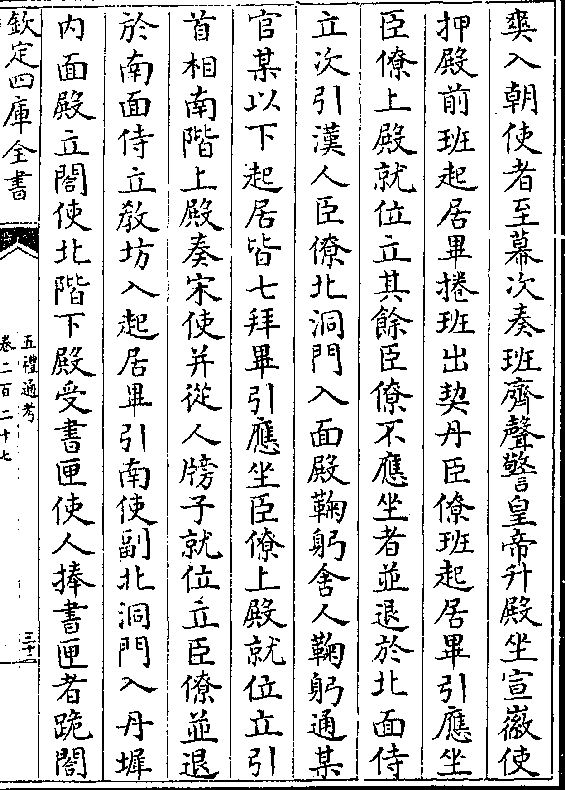 爽入朝使者至幕次奏班齊聲警皇帝升殿坐宣徽使
押殿前班起居畢捲班出契丹臣僚班起居畢引應坐
臣僚上殿就位立其餘臣僚不應坐者並退於北面侍
立次引漢人臣僚北洞門入面殿鞠躬舍人鞠躬通某
官某以下起居皆七拜畢引應坐臣僚上殿就位立引
首相南階上殿奏宋使并從人牓子就位立臣僚並退
於南面侍立教坊入起居畢引南使副北洞門入丹墀
内面殿立閤使北階下殿受書匣使人捧書匣者跪閤
欽定四庫全書
五禮通考
卷二百二十七
三十一